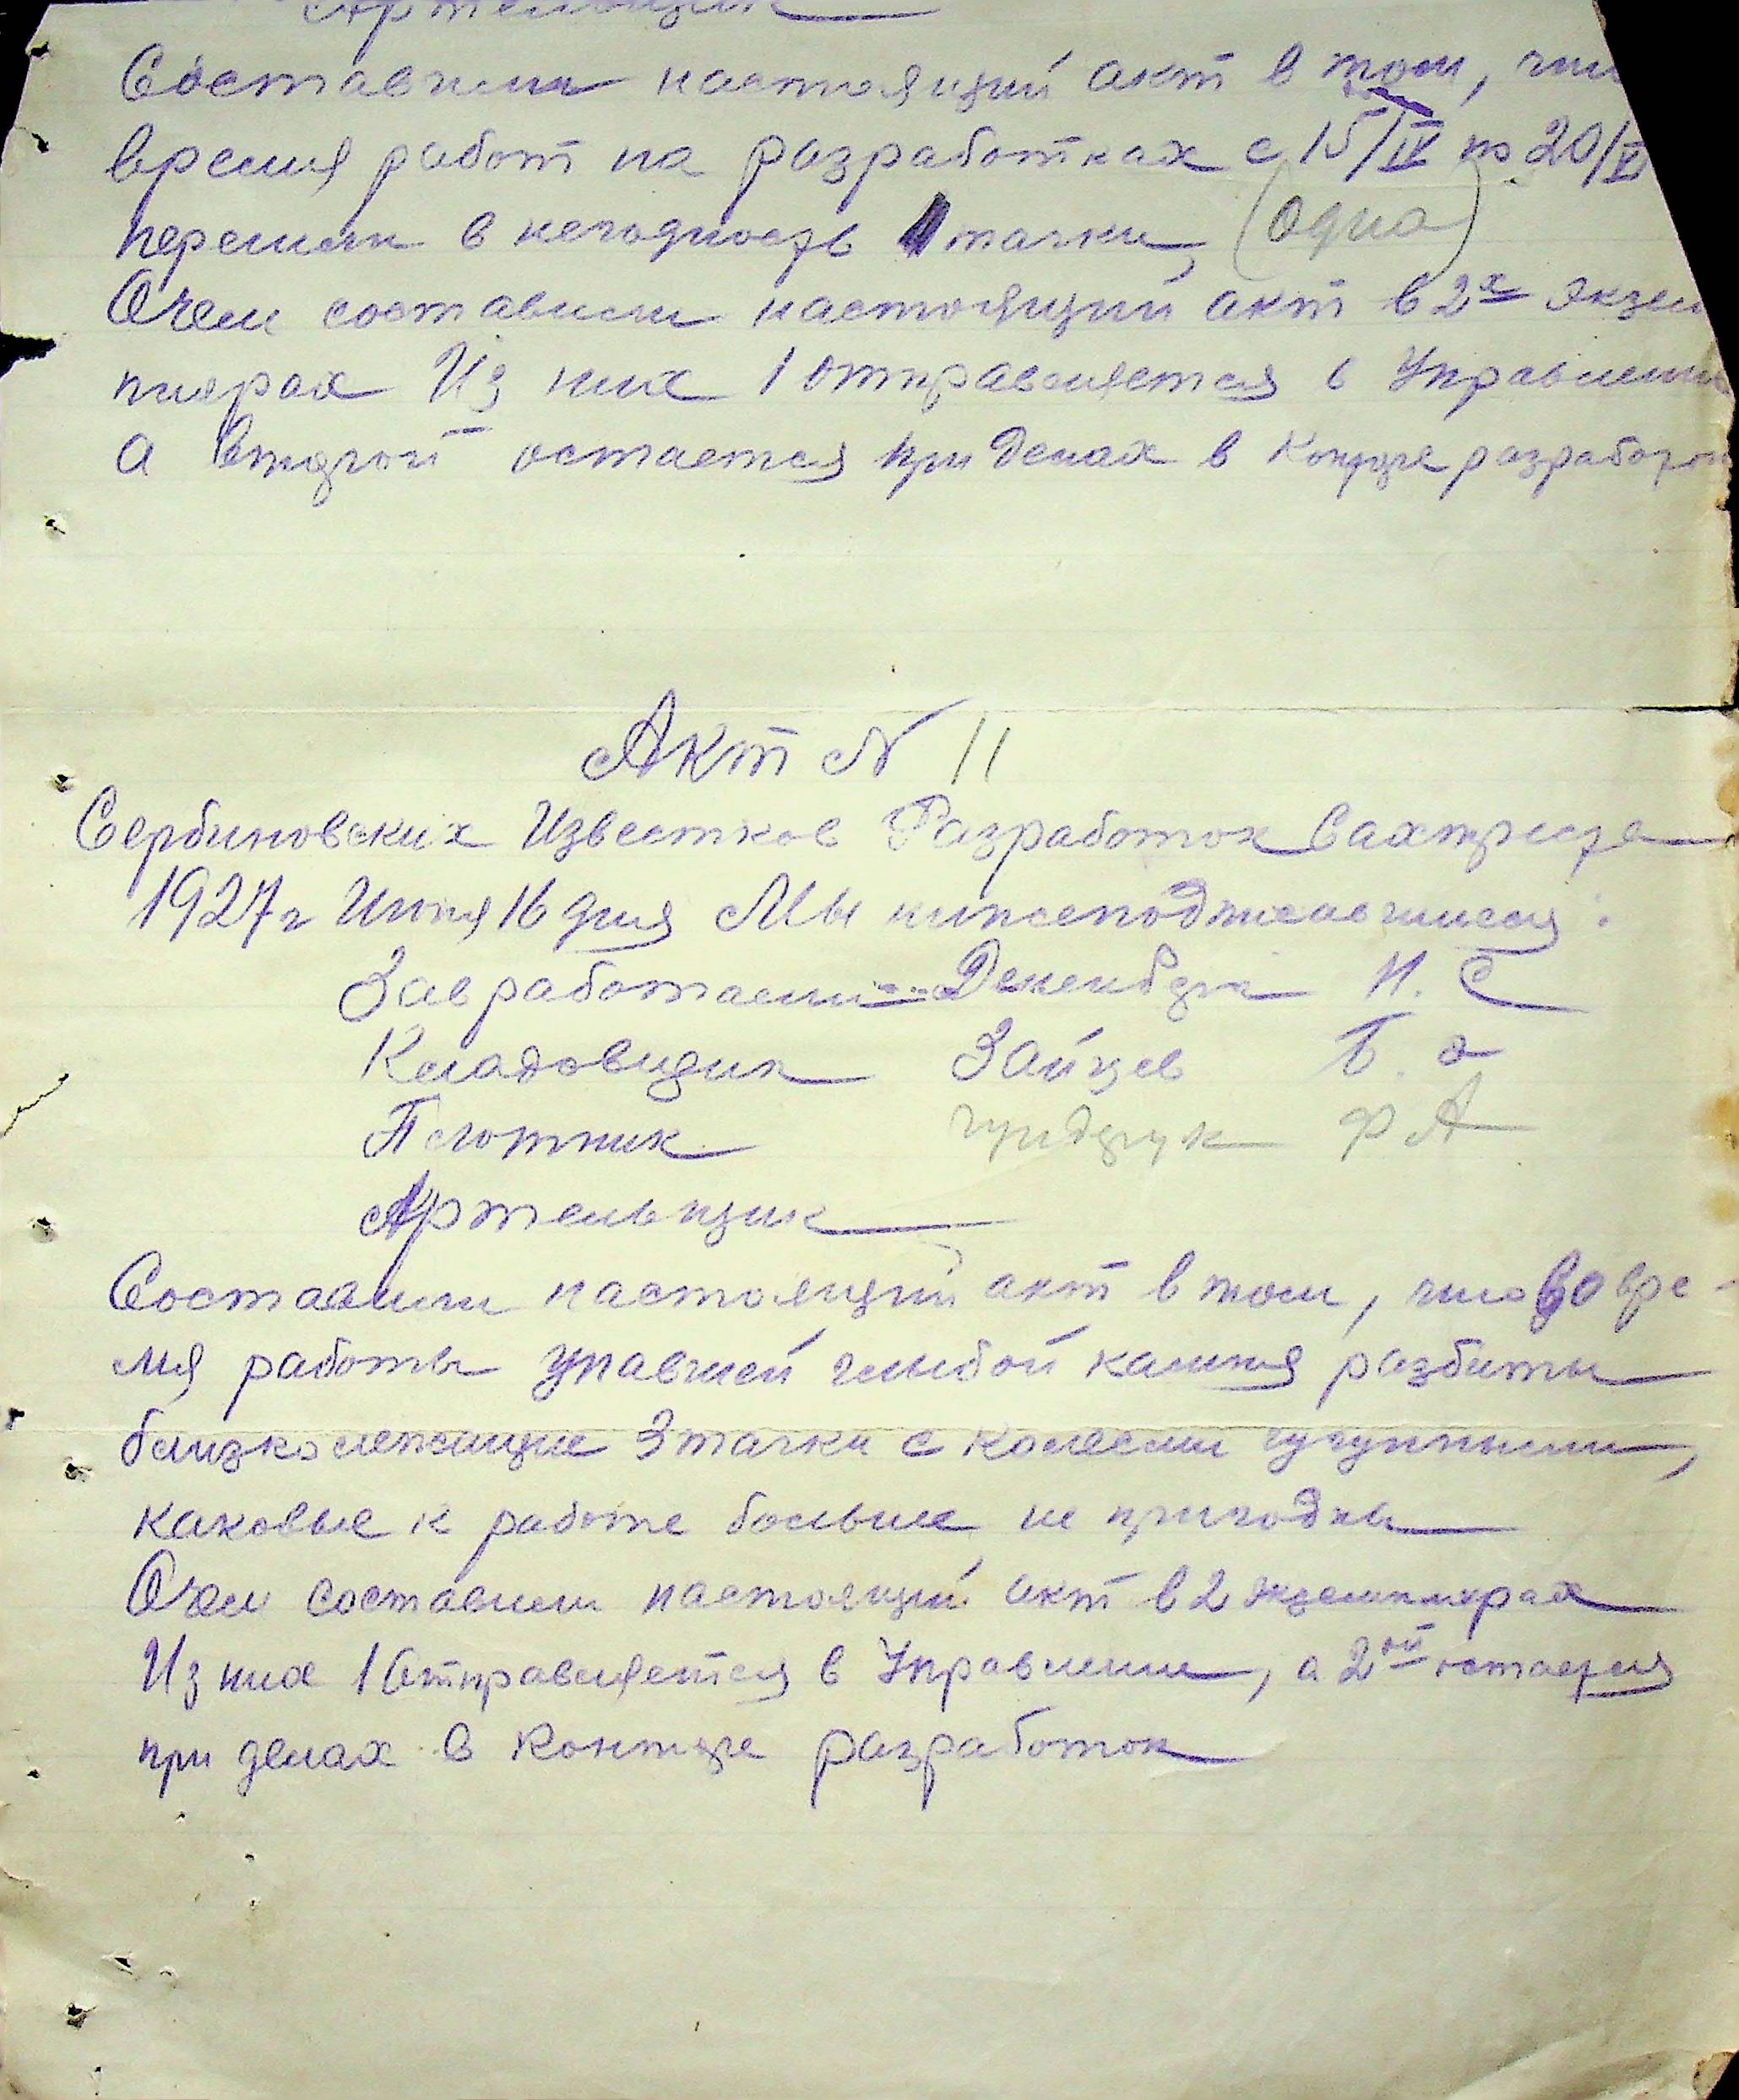 Артельщик
Составили настоящий акт в том, что
время работ на разработках с 15/IV по 20/V
пришли в негодность 1 тачки, (одна)
О чем составили настоящий акт в 2х экзем
плярах Из них 1 отправляется в Управление
а второй остается при делах в Конторе разработок
Акт N 11
Сербиновских Известков Разработок Сахтреста
1927г Июня 16 дня Мы нижеподписавшиеся:
Завработами И. С
Кладовщик Зайцев Б.
Плотник Ф А
Артельщик
Составили настоящий акт в том, что во вре-
мя работы упавшей глыбой камня разбиты
близко лежащие 3 тачки с колесами чугунными,
каковые к работе больше не пригодны
О чем составили настоящий акт в 2 экземплярах
Из них 1 Отправляется в Управление, а 2ой остается
при делах в Конторе разработок